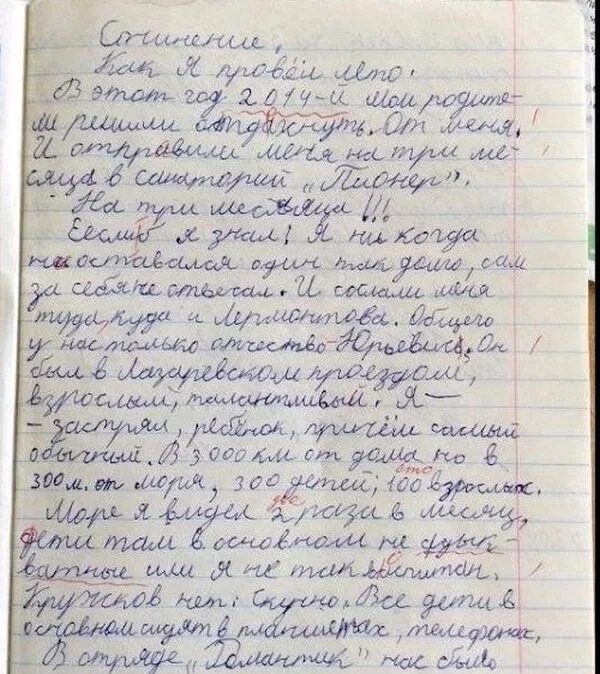 Сочинение.
Как я провёл лето.
В этот год 2014-й мои родите-
ли решили отдахнуть. От меня.
И отправили меня на три ме-
сяца в санаторий „Пионер".
На три месяца!!!
Еслиб я знал! Я ни когда
не оставался один так долго, сам
за себя не отвечал. И сослали меня
туда, куда и Лермонтова. Общего
у нас только отчество - Юрьевич. Он
был в Лазаревском проездом,
взрослым, талантливый. Я —
- застрял, ребёнок, причём самый
обычный. В 3000 км от дома но в
300 м. от моря, 300 детей, 100 взрослых.
сто
Море я видел 2 раза в месяц,
две
дети там в основном не адык-
ватные или я не так воспитан.
Кружков нет. Скучно. Все дети в
основном сидят в планшетах, телефонах.
В отряде „Романтик" нас было